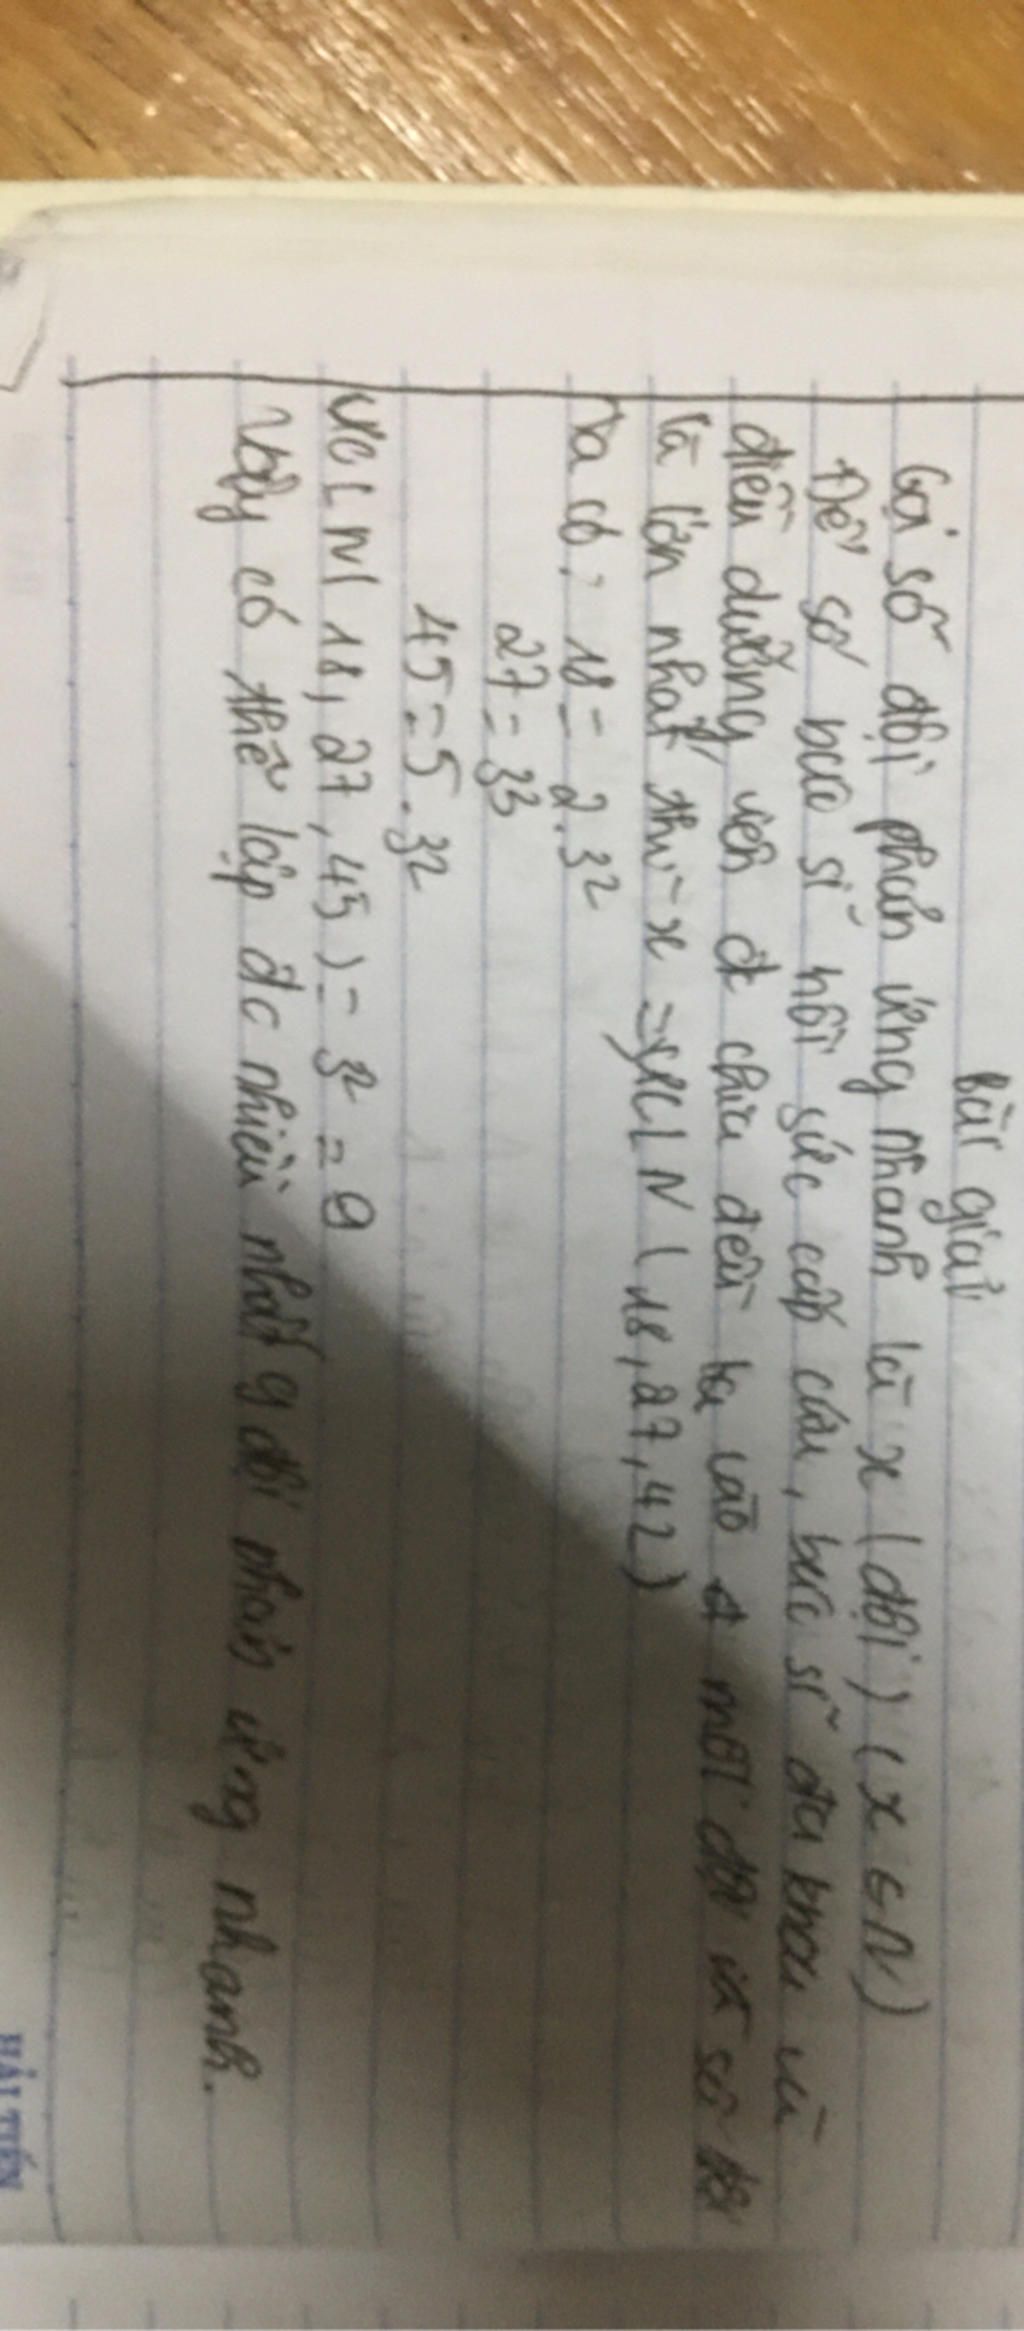 Bài giải
Gọi số đội phản ứng nhanh là x (đội) (x ∈ N)
Để số bác sĩ hồi sức cấp cứu, bác sĩ đa khoa và
điều dưỡng viên đc chia đều ta vào mỗi đội và số đội
là lớn nhất thì x = ƯCLN (18, 27, 42)
Ta có: 18 = 2.3²
27 = 3³
45 = 5.3²
ƯCLN(18, 27, 45) = 3² = 9
Vậy có thể lập đc nhiều nhất 9 đội phản ứng nhanh.
HẢI TIẾN